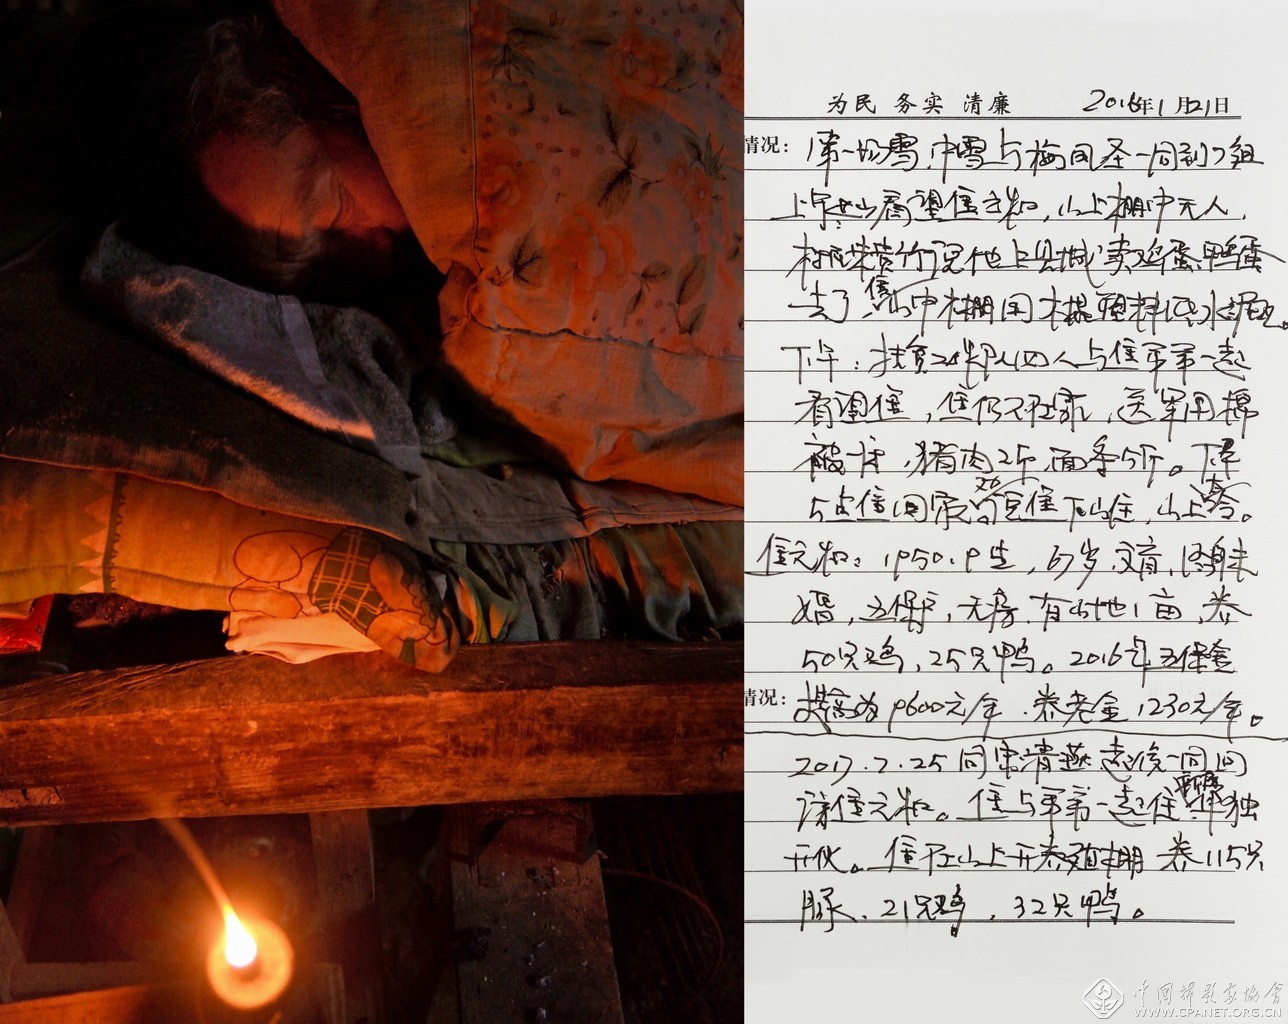 为民 务实 清廉 2016年1月21日
情况： 第一场雪，中雪与梅同圣一同到7组
上 山看望佳元松，山上棚中无人，
竹说他上县城卖鸡蛋鸭蛋
去了， 山中棚用木棍塑料
下午：扶贫工作队四人与佳军弟一起
看望佳，佳仍不在家，送军用棉
被一床，猪肉2斤，面条5斤。
佳回家 佳下山住，山上冷。
佳元松：1950.9生，67岁，文盲，终身未
婚，五保户，无房，有山地1亩，养
50只鸡，25只鸭。2016年五保金
情况： 提高为9600元/年，养老金1230元/年。
2017.2.25同宋清燕 一同回
访佳元松。佳与军弟一起住，单独
开伙。佳在山上开养殖棚 养115只
豚、21只鸡、32只鸭。
中国摄影家协会
WWW.CPANET.ORG.CN